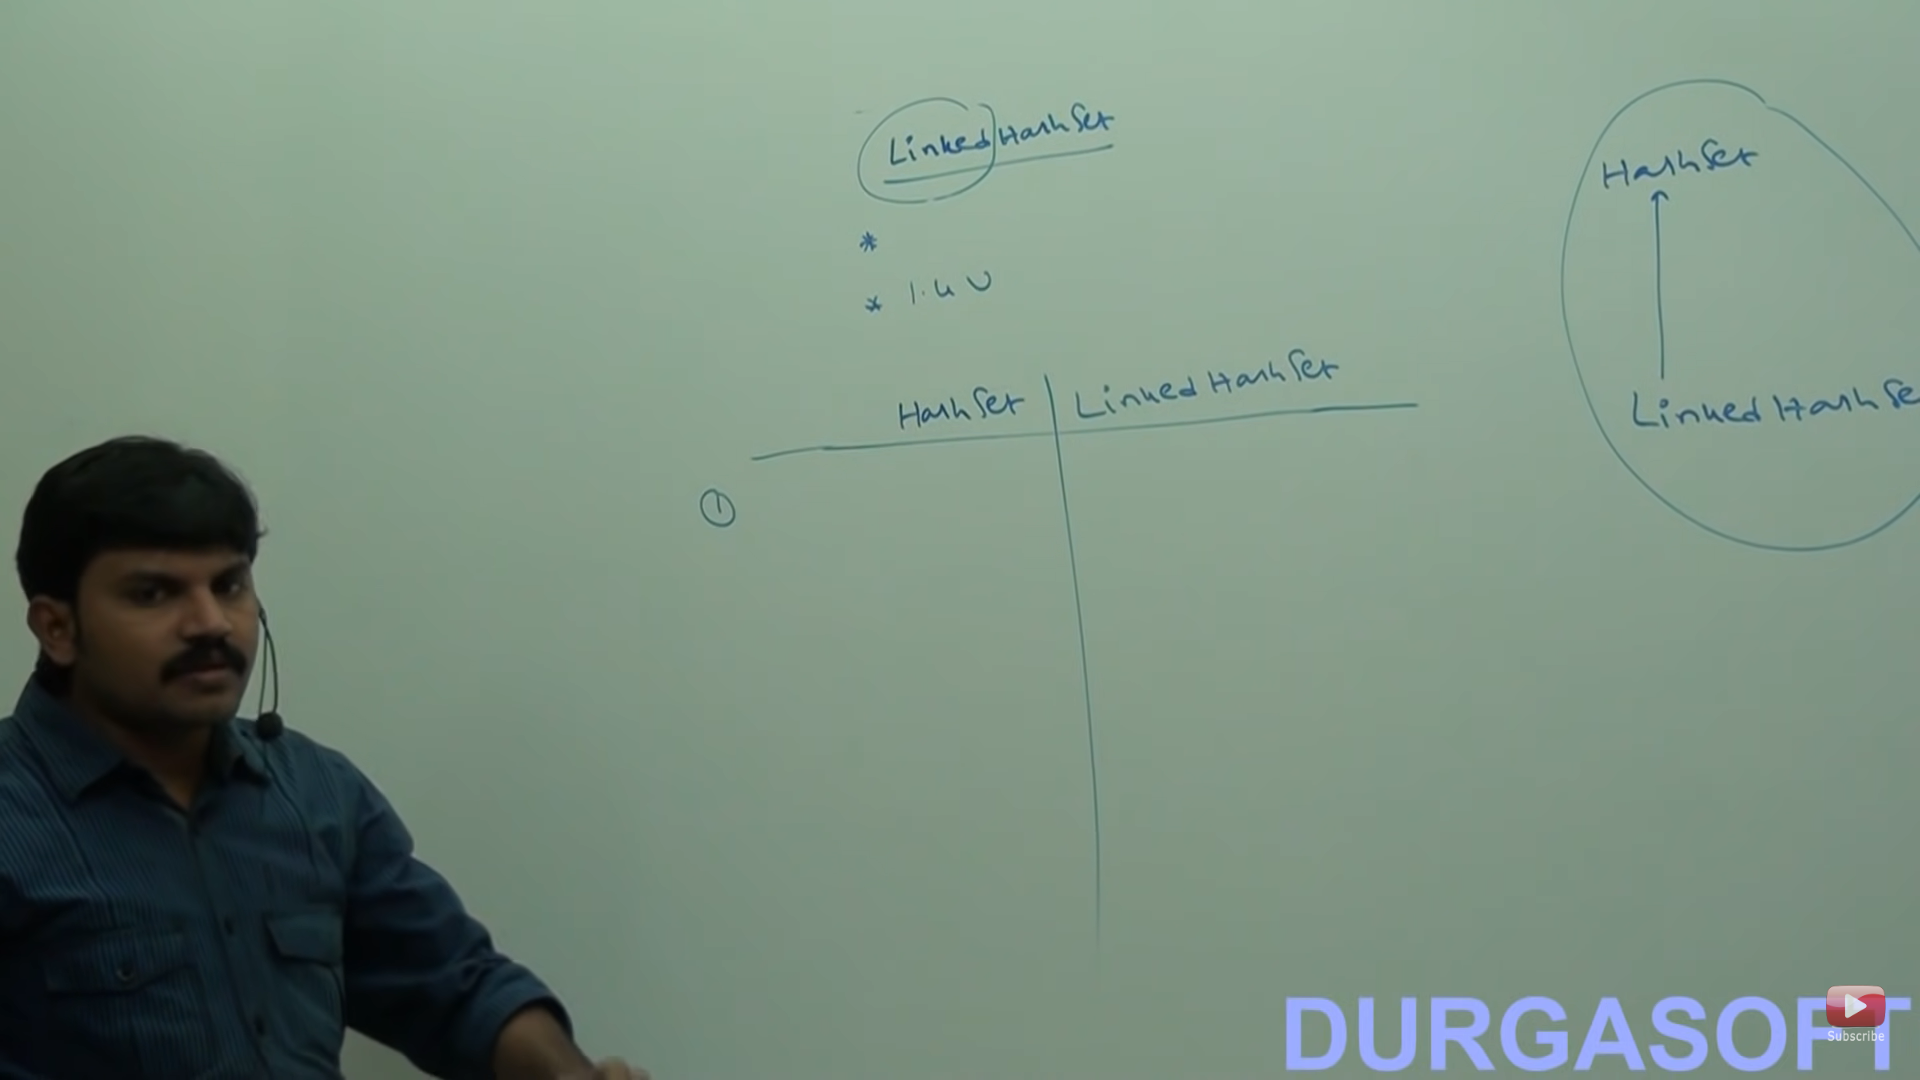 LinkedHashSet
*
* 1.4 V
HashSet | LinkedHashSet
①
HashSet
LinkedHashSe
DURGASOFT
Subscribe